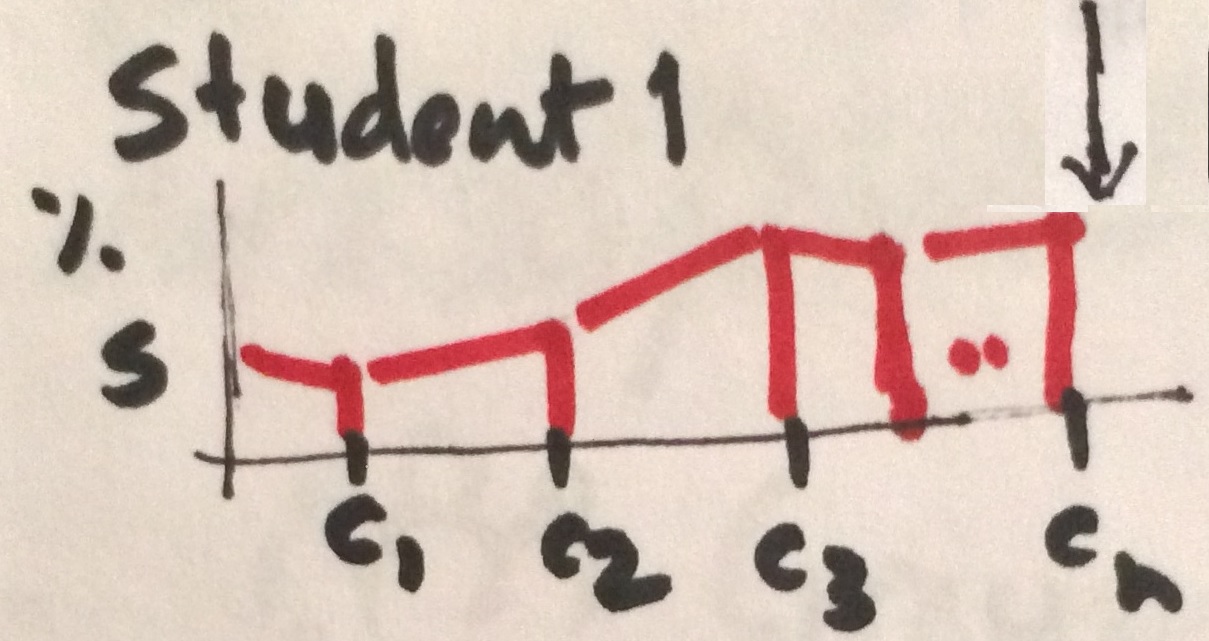 Student 1
%
S
C1 C2 C3 Cn